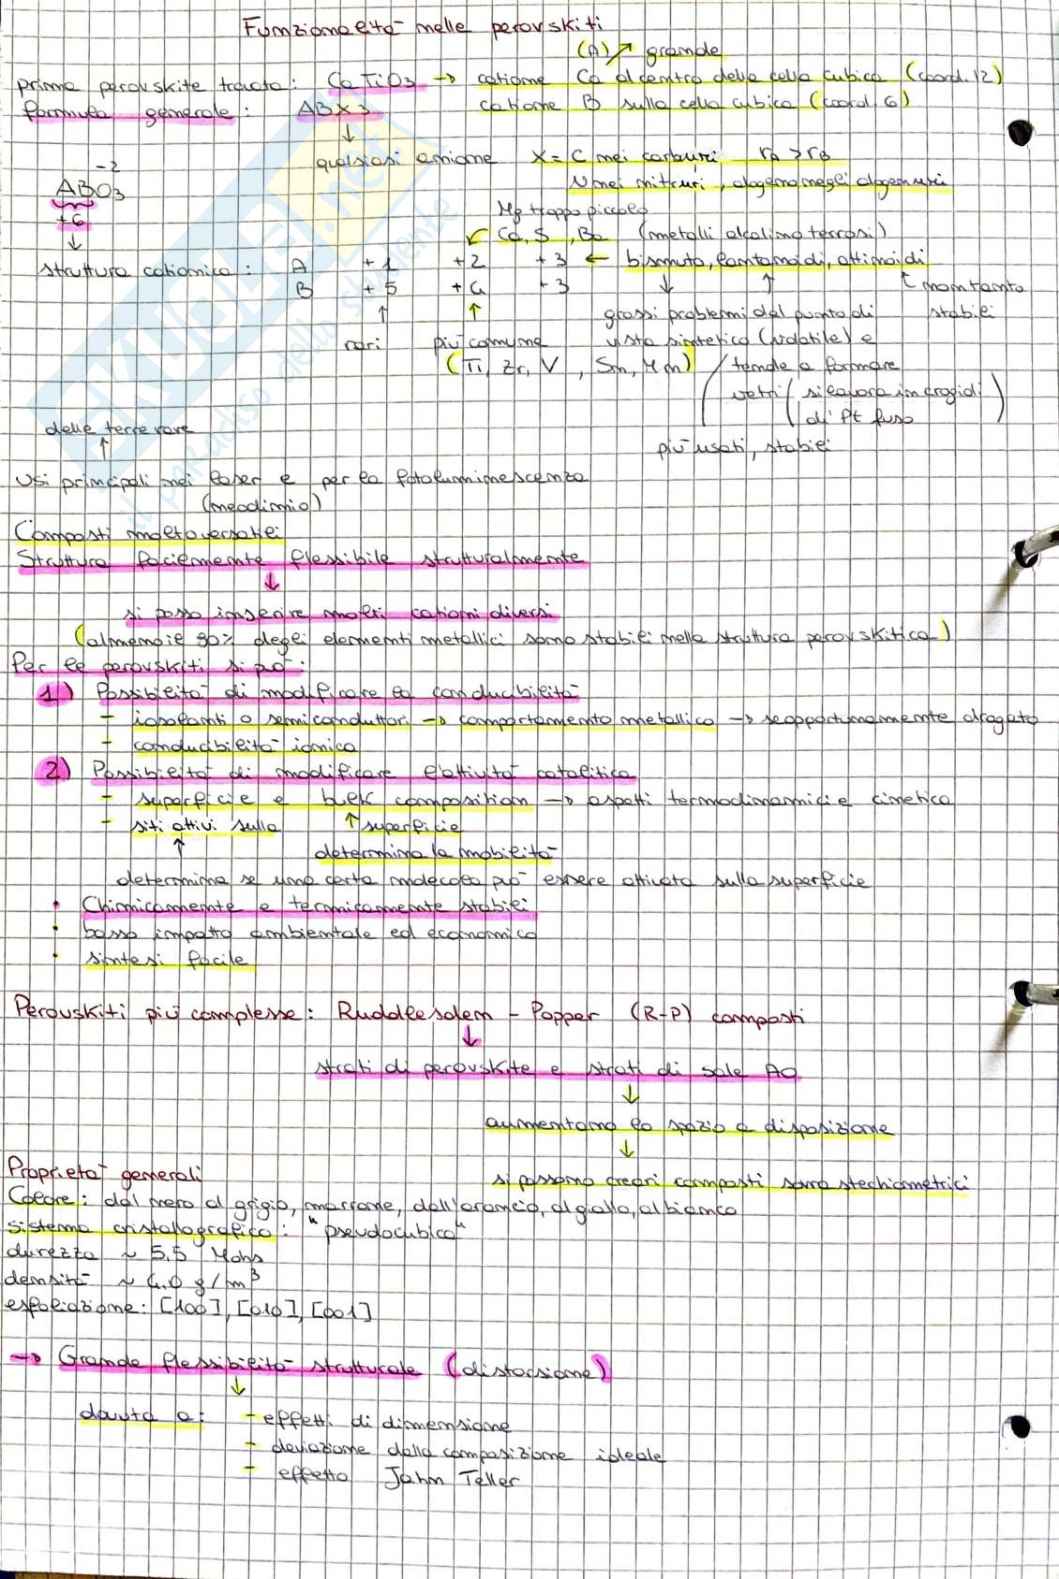 Funzionalità nelle perovskiti
(A)↗ grande
prima perovskite trovata: CaTiO3 → catione Ca al centro della cella cubica (coord. 12)
formula generale: ABX3 catione B sulla cella cubica (coord. 6)
↓
qualsiasi anione X = C nei carburi rA > rB
N nei nitruri, alogeno negli alogenuri
-2
ABO3
+6
↓
Mg troppo piccolo
Ca, S, Ba (metalli alcalino terrosi)
struttura cationica: A +1 +2 +3 ← bismuto, lantanoidi, attinoidi
B +5 +4 +3 ↓ ↑ non tanto
↑ ↑ grossi problemi dal punto di stabili
rari più comune vista sintetico (volatile) e
(Ti, Zr, V, Sn, Mn) tende a formare
vetri (si lavora in crogioli
di Pt fuso)
delle terre rare più usati, stabili
↑
Usi principali nei laser e per la fotoluminescenza
(neodimio)
Composti molto versatili
Struttura facilmente flessibile strutturalmente
↓
si posso inserire molti cationi diversi
(almeno il 90% degli elementi metallici sono stabili nella struttura perovskitica)
Per le perovskiti si può:
1) Possibilità di modificare la conducibilità
- isolanti o semiconduttori → comportamento metallico → se opportunamente drogato
- conducibilità ionica
2) Possibilità di modificare l'attività catalitica
- superficie e bulk composition → aspetti termodinamici e cinetica
- siti attivi sulla superficie
↑ ↑ determina la mobilità
determina se una certa molecola può essere attivata sulla superficie
• Chimicamente e termicamente stabili
• basso impatto ambientale ed economico
• sintesi facile
Perovskiti più complesse: Ruddlesdem - Popper (R-P) composti
↓
strati di perovskite e strati di sale AO
↓
aumentano lo spazio a disposizione
↓
Proprietà generali
si possono creari composti sovra stechiometrici
Colore: dal nero al grigio, marrone, dall'arancio, al giallo, al bianco
sistema cristallografico: "pseudocubico"
durezza ~ 5.5 Mohs
densità ~ 4.0 g/m³
esfoliazione: [100], [010], [001]
→ Grande flessibilità strutturale (distorsione)
↓
dovuta a: - effetti di dimensione
- deviazione dalla composizione ideale
- effetto Jahn Teller